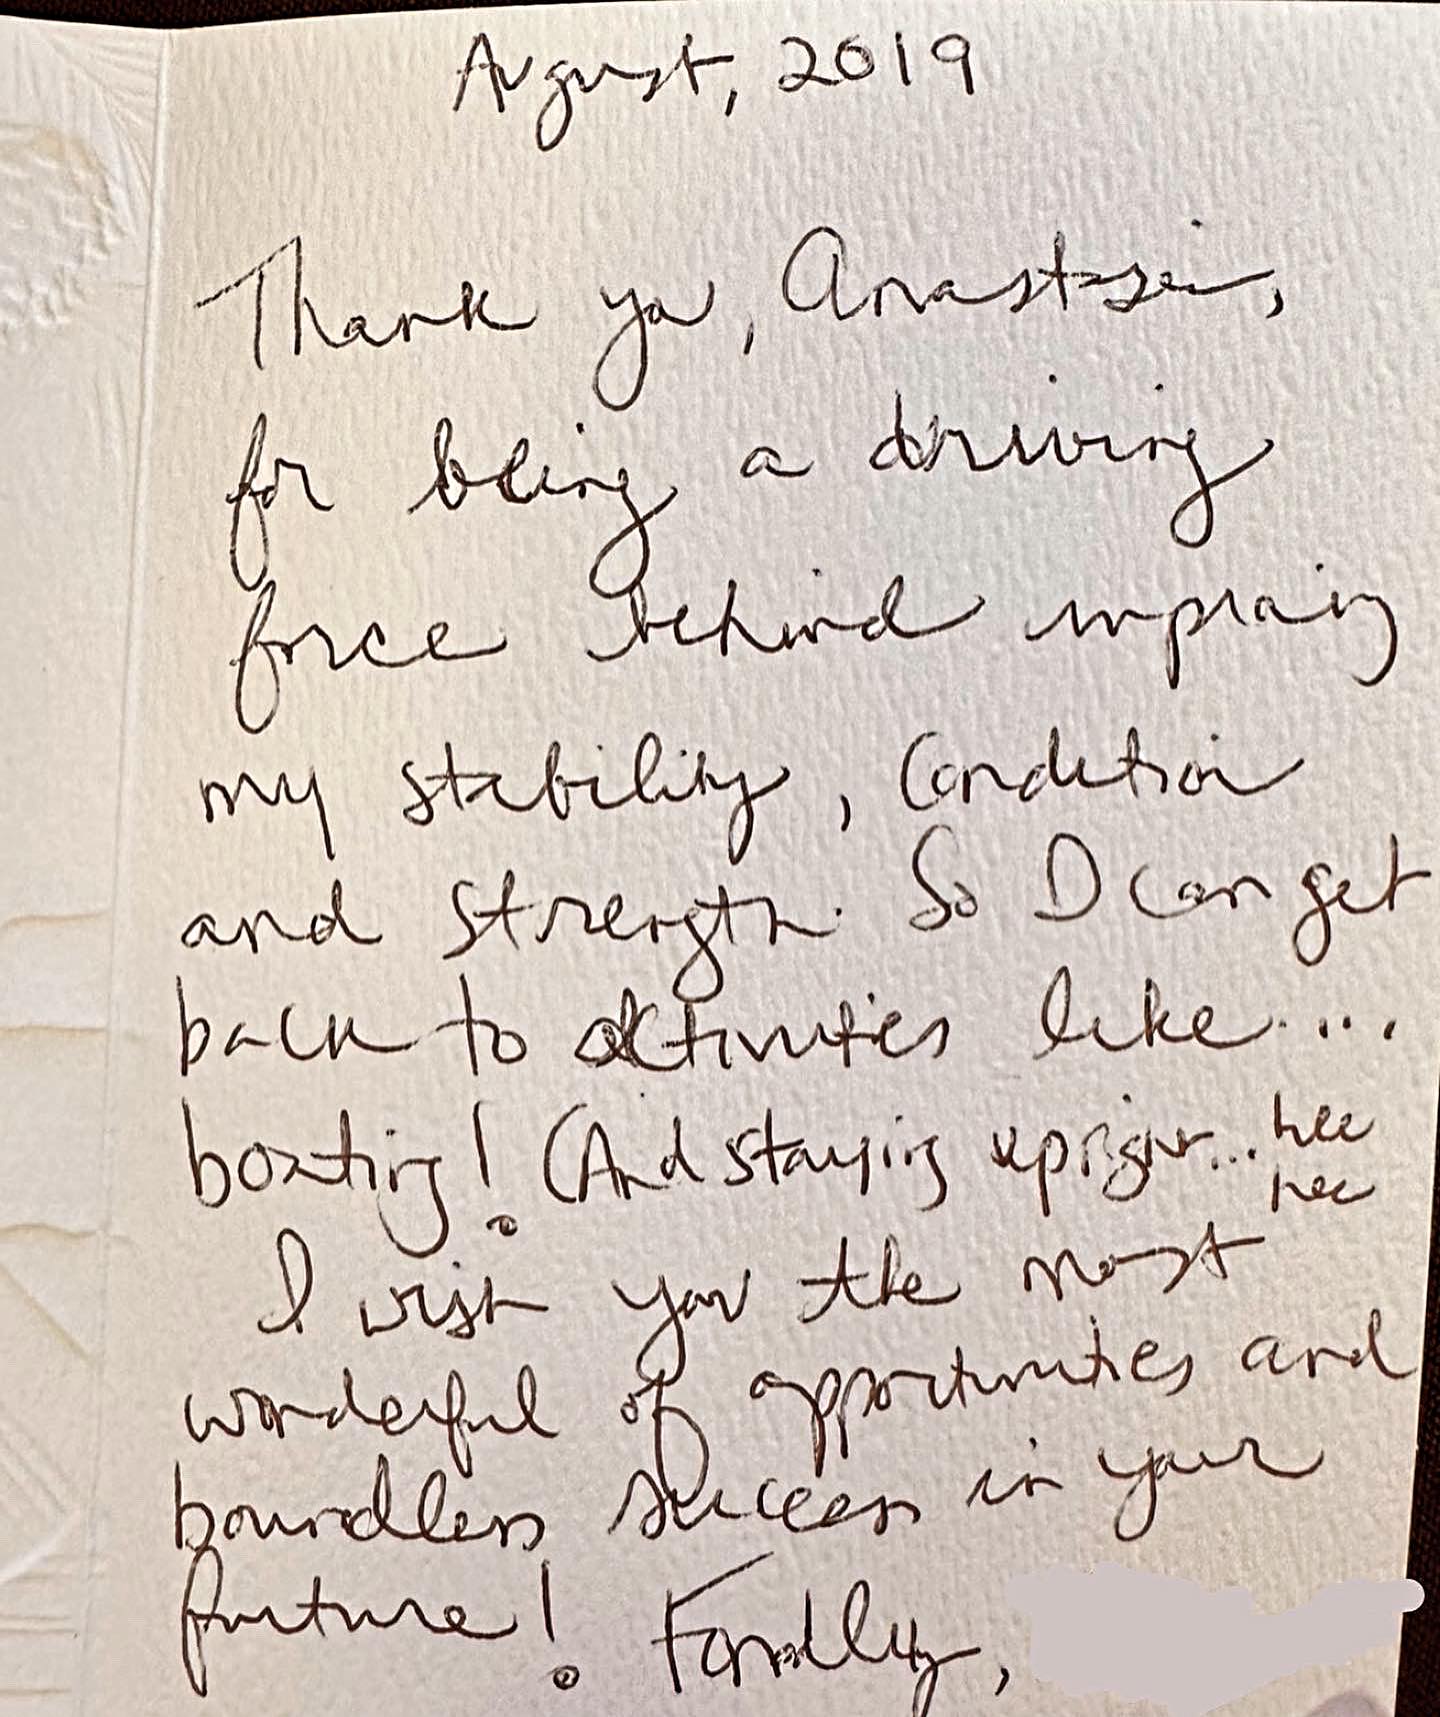 August, 2019
Thank you, Anastasia,
for being a driving
force behind improving
my stability, condition
and strength. So I can get
back to activities like....
boxing! (And staying upright... hee
hee
I wish you the most
wonderful of opportunities and
boundless success in your
future! Fondly,